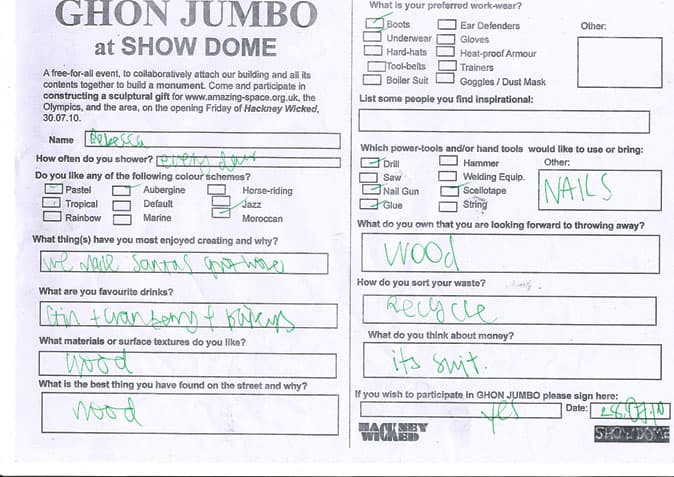 GHON JUMBO
at SHOW DOME
A free-for-all event, to collaboratively attach our building and all its
contents together to build a monument. Come and participate in
constructing a sculptural gift for www.amazing-space.org.uk, the
Olympics, and the area, on the opening Friday of Hackney Wicked,
30.07.10.
Name Rebecca
How often do you shower? every day
Do you like any of the following colour schemes?
Pastel Aubergine Horse-riding
Tropical Default Jazz
Rainbow Marine Moroccan
What thing(s) have you most enjoyed creating and why?
we made santas
What are you favourite drinks?
Gin + cranberry +
What materials or surface textures do you like?
wood
What is the best thing you have found on the street and why?
wood
What is your preferred work-wear?
Boots Ear Defenders Other:
Underwear Gloves
Hard-hats Heat-proof Armour
Tool-belts Trainers
Boiler Suit Goggles / Dust Mask
List some people you find inspirational:
Which power-tools and/or hand tools would like to use or bring:
Drill Hammer Other:
Saw Welding Equip. NAILS
Nail Gun Scellotape
Glue String
What do you own that you are looking forward to throwing away?
WOOD
How do you sort your waste?
RECYCLE
What do you think about money?
its shit.
If you wish to participate in GHON JUMBO please sign here:
yes Date: 28.07.10
HACKNEY
WICKED
SHOWDOME